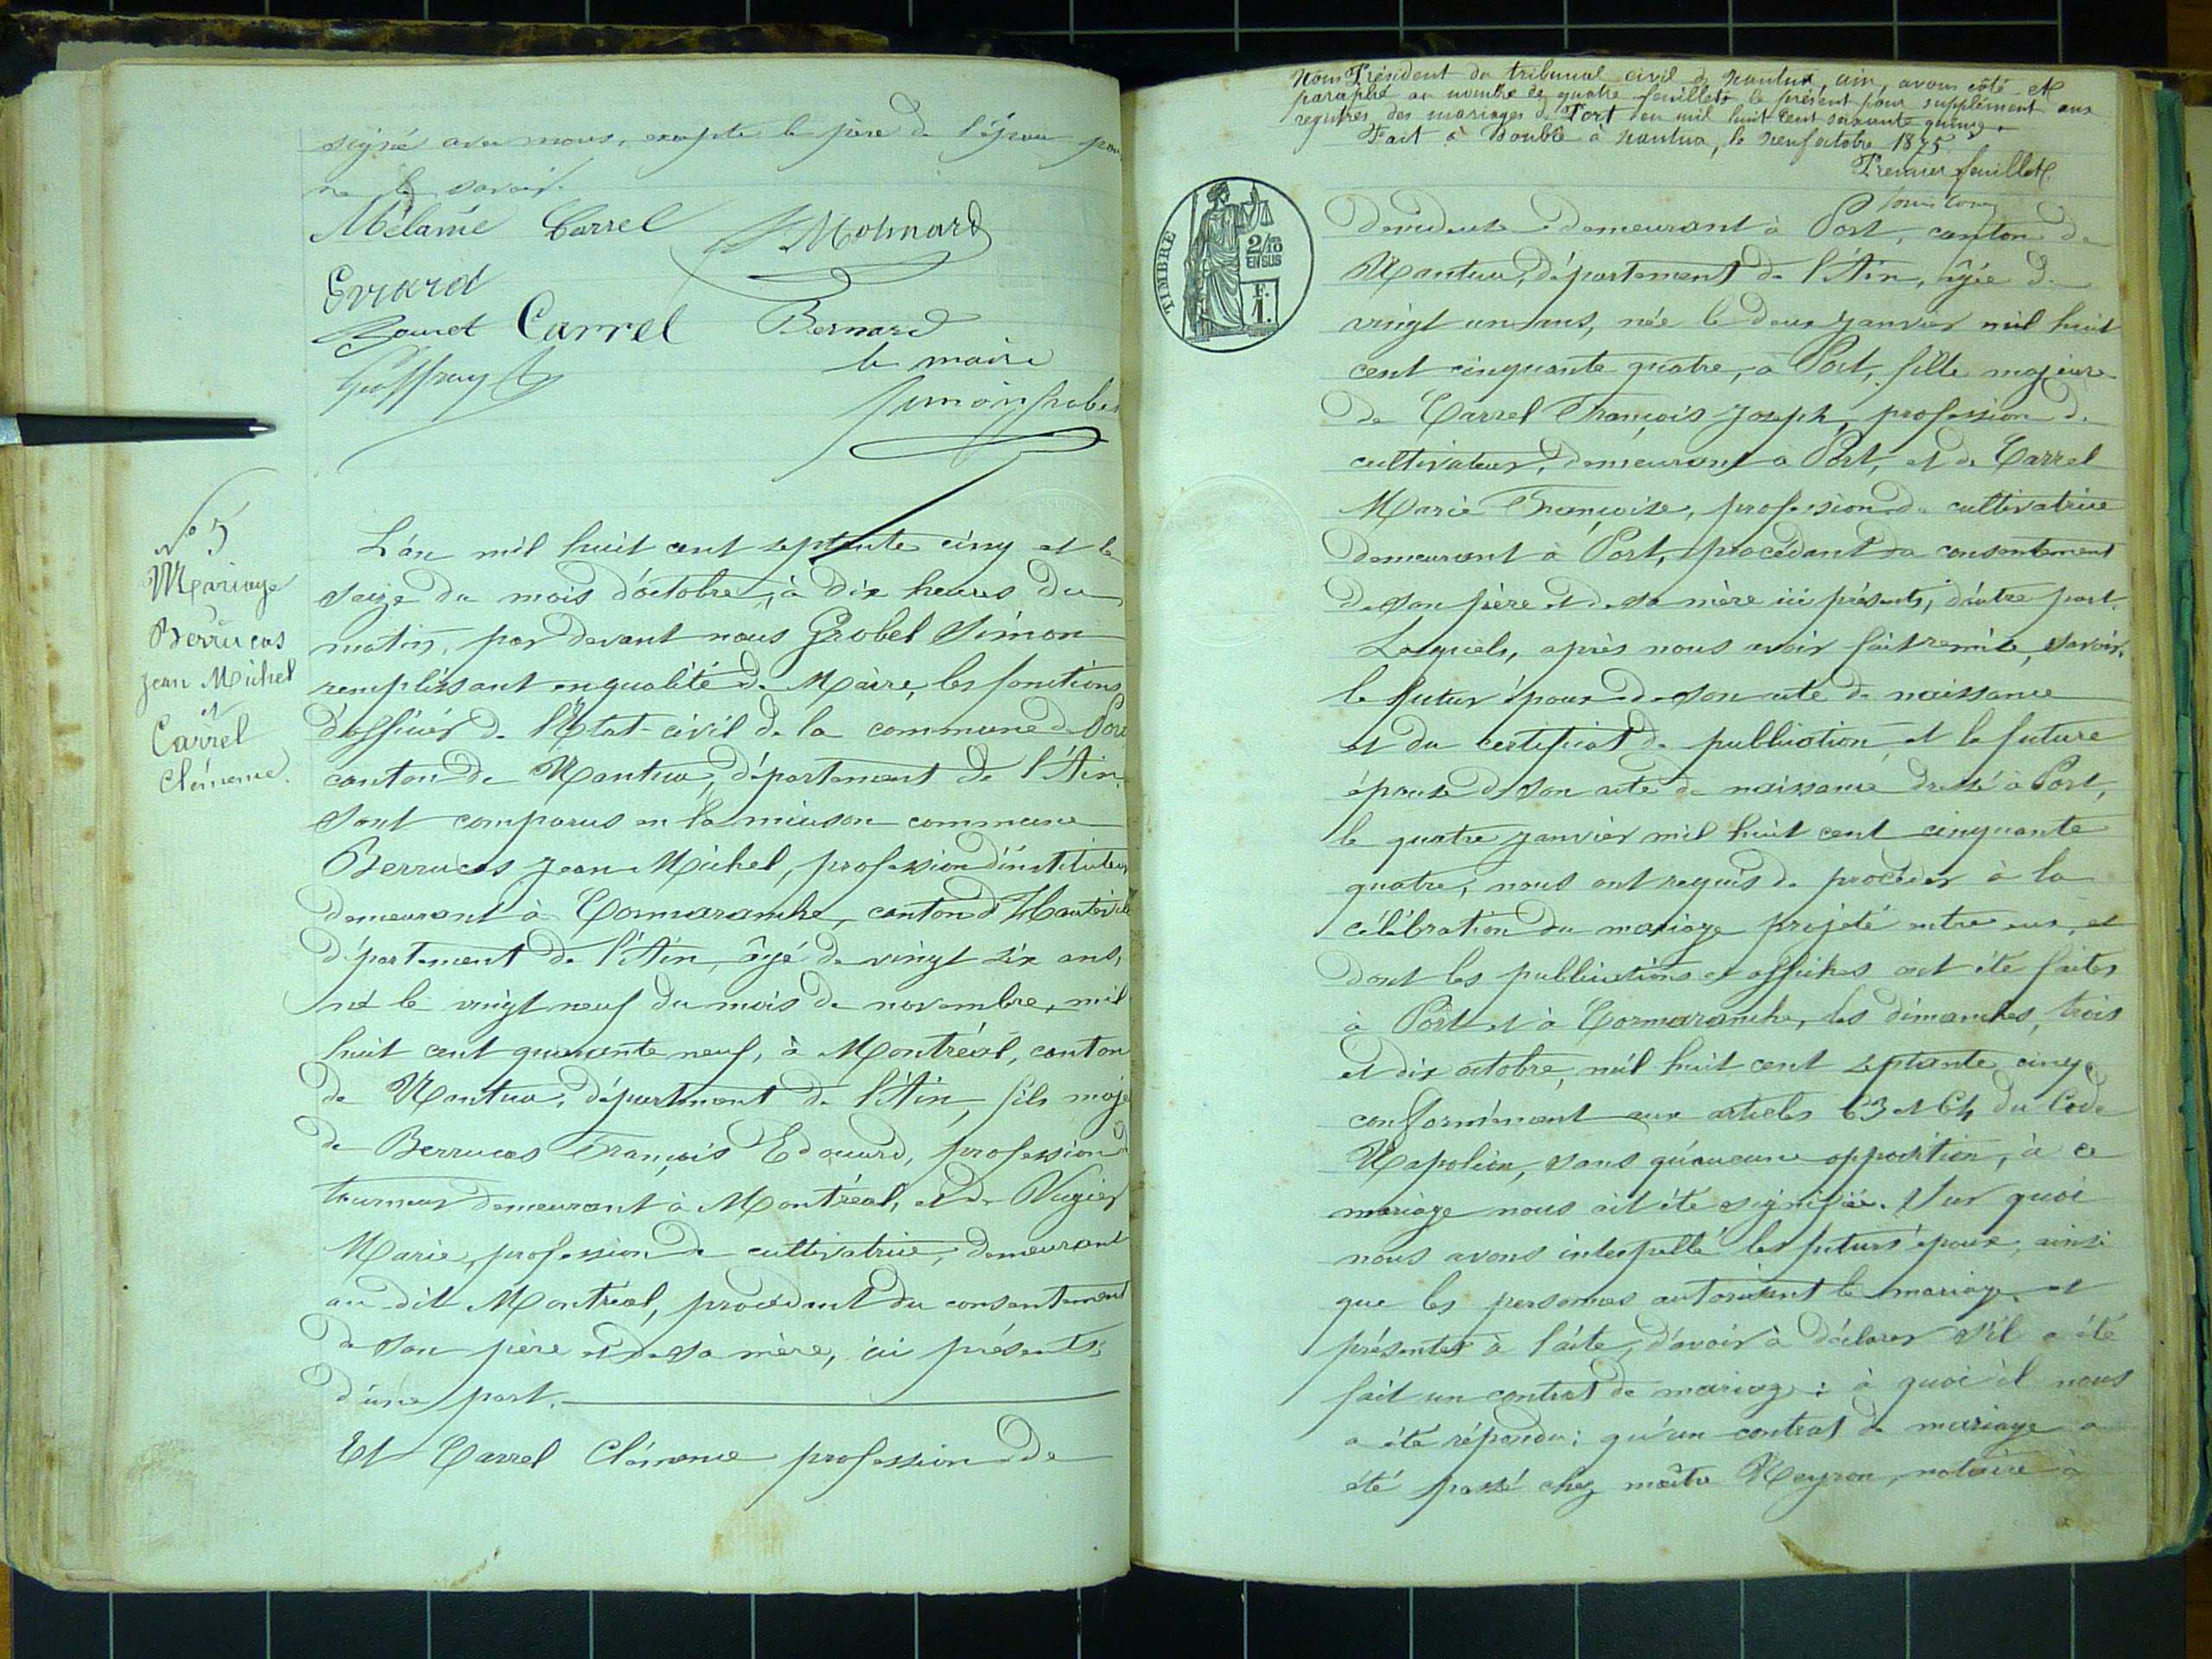 signé avec nous, excepté le père de l'époux pour
ne le savoir.
Mélanie Carrel Molinard
Evrard
Carrel Bernard
Geoffray le maire
Simon Grobel
N° 5
Mariage
Berrucas
Jean Michel
et
Carrel
Clémence.
L'an mil huit cent septante cinq et le
seize du mois d'octobre, à dix heures du
matin, par devant nous Grobel Simon
remplissant en qualité de Maire, les fonctions
d'officier de l'État-civil de la commune de Port
canton de Nantua, département de l'Ain.
Sont comparus en la maison commune
Berrucas Jean Michel, profession d'instituteur
demeurant à Cormaranche, canton d'Hauteville
département de l'Ain, âgé de vingt six ans,
né le vingt neuf du mois de novembre, mil
huit cent quarante neuf, à Montréal, canton
de Nantua, département de l'Ain, fils maje
de Berrucas François Edouard, profession de
tourneur demeurant à Montréal, et de Vugier
Marie, profession de cultivatrice, demeurant
au dit Montréal, procédant du consentement
de son père et de sa mère, ici présents;
d'une part.
Et Carrel Clémence profession de
Nous Président du tribunal civil de Nantua, ain, avons côté et
paraphé au nombre de quatre feuillets le présent pour supplément aux
registres des mariages de Port en mil huit cent soixante quinze.
Fait à double à Nantua, le neuf octobre 1875.
Premier feuillet.
TIMBRE
2/10
EN SUS
F.
1.
demeurant à Port, canton de
Nantua, département de l'Ain, âgée de
vingt un ans, née le deux janvier mil huit
cent cinquante quatre, à Port, fille majeure
de Carrel François Joseph, profession de
cultivateur, demeurant à Port, et de Carrel
Marie Françoise, profession de cultivatrice
demeurant à Port, procédant du consentement
de son père et de sa mère ici présents, d'autre part.
Lesquels, après nous avoir fait remise, savoir,
le futur époux de son acte de naissance
et du certificat de publication et la future
épouse de son acte de naissance dressé à Port,
le quatre janvier mil huit cent cinquante
quatre, nous ont requis de procéder à la
célébration du mariage projeté entre eux, et
dont les publications et affiches ont été faites
à Port et à Cormaranche, les dimanches, trois
et dix octobre, mil huit cent septante cinq,
conformément aux articles 63 et 64 du Code
Napoléon, sans qu'aucune opposition, à ce
mariage nous ait été signifiée. Sur quoi
nous avons interpellé les futurs époux, ainsi
que les personnes autorisant le mariage et
présentes à l'acte, d'avoir à déclarer s'il a été
fait un contrat de mariage: à quoi il nous
a été répondu: qu'un contrat de mariage a
été passé chez maître Neyron, notaire à